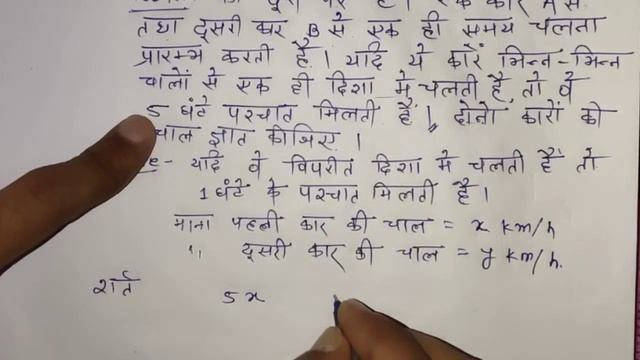 की दूरी पर है। एक कार A से
तथा दूसरी कार B से एक ही समय चलना
प्रारम्भ करती है। यदि ये कारें भिन्न-भिन्न
चालों से एक ही दिशा मे चलती है, तो वे
5 घंटे पश्चात मिलती है। दोनो कारों की
चाल ज्ञात कीजिए।
- यदि वे विपरीत दिशा मे चलती है तो
1 घंटे के पश्चात मिलती है।
माना पहली कार की चाल = x km/h
,, दूसरी कार की चाल = y km/h.
शर्त 5x